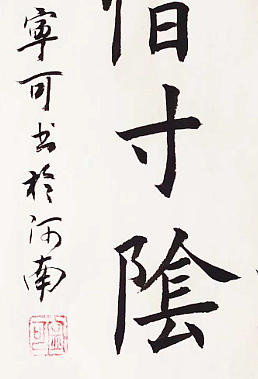 惜寸陰
寧可书於河南